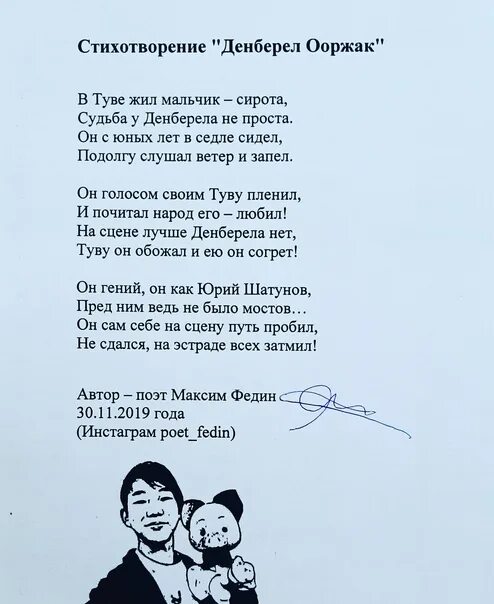 Стихотворение "Денберел Ооржак"
В Туве жил мальчик – сирота,
Судьба у Денберела не проста.
Он с юных лет в седле сидел,
Подолгу слушал ветер и запел.
Он голосом своим Туву пленил,
И почитал народ его – любил!
На сцене лучше Денберела нет,
Туву он обожал и ею он согрет!
Он гений, он как Юрий Шатунов,
Пред ним ведь не было мостов…
Он сам себе на сцену путь пробил,
Не сдался, на эстраде всех затмил!
Автор – поэт Максим Федин
30.11.2019 года
(Инстаграм poet_fedin)